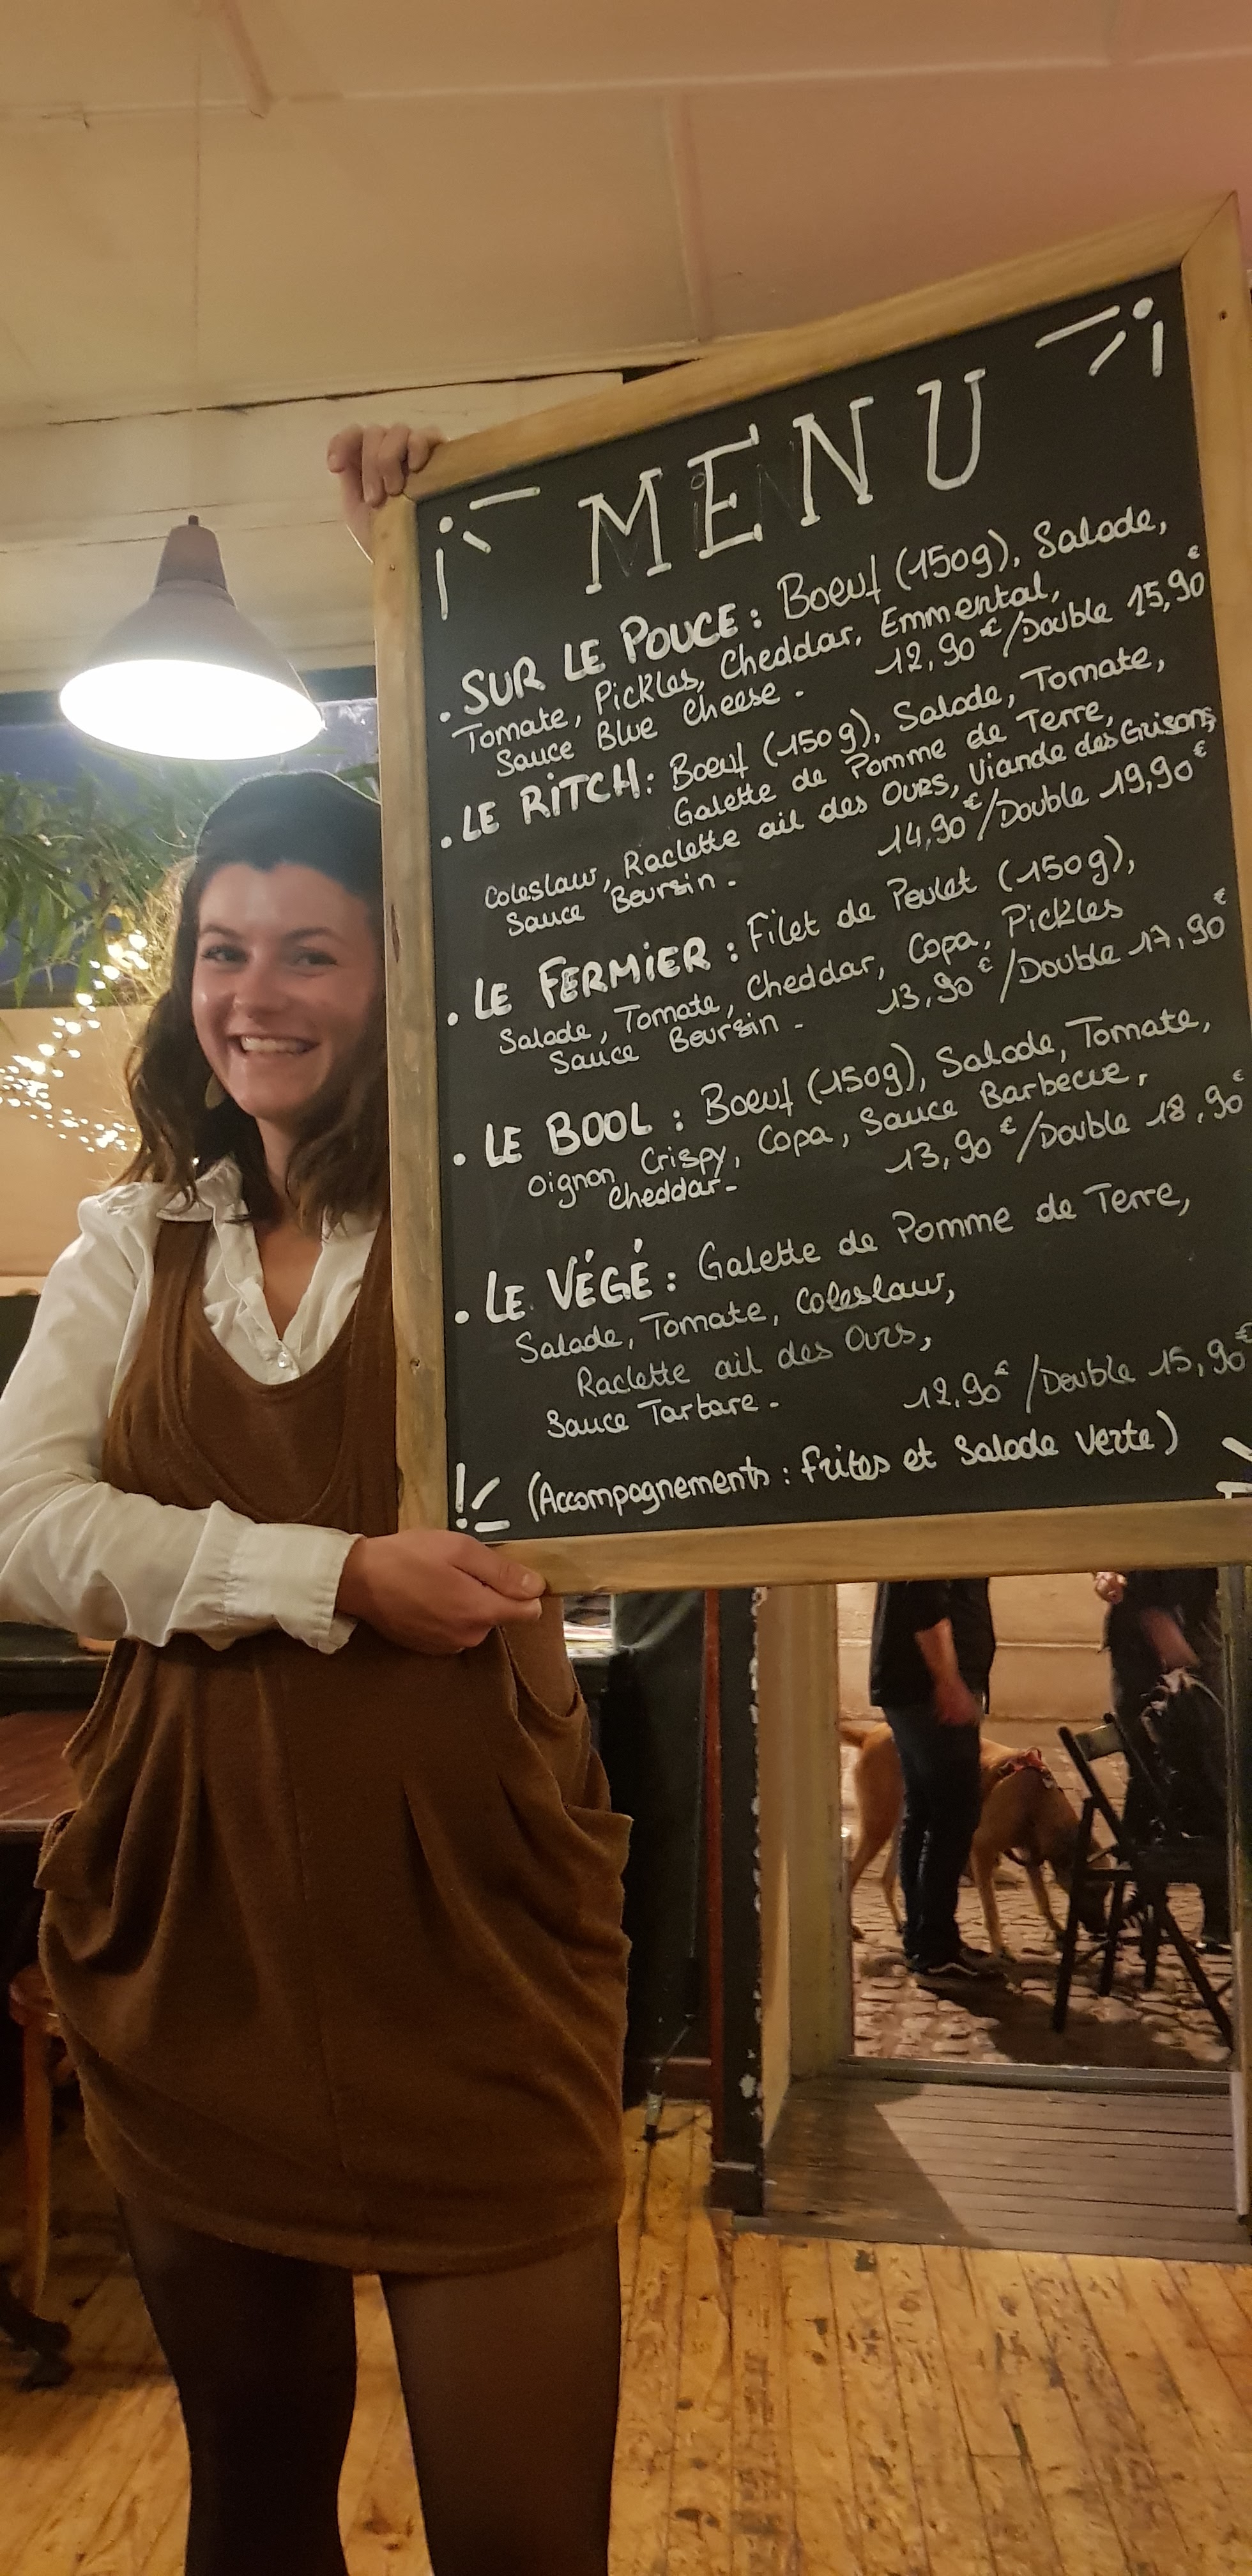 MENU
. SUR LE POUCE : Boeuf (150g), Salade,
Tomate, Pickles, Cheddar, Emmental,
Sauce Blue Cheese. 12,90€/Double 15,90€
. LE RITCH : Boeuf (150g), Salade, Tomate,
Galette de Pomme de Terre,
Coleslaw, Raclette ail des Ours, Viande des Grisons,
Sauce Boursin. 14,90€/Double 19,90€
. LE FERMIER : Filet de Poulet (150g),
Salade, Tomate, Cheddar, Copa, Pickles
Sauce Boursin. 13,90€/Double 17,90€
. LE BOOL : Boeuf (150g), Salade, Tomate,
Oignon Crispy, Copa, Sauce Barbecue,
Cheddar. 13,90€/Double 18,90€
. LE VÉGÉ : Galette de Pomme de Terre,
Salade, Tomate, Coleslaw,
Raclette ail des Ours,
Sauce Tartare. 12,90€/Double 15,90€
(Accompagnements : frites et Salade Verte)